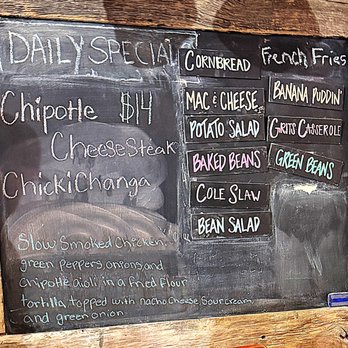 DAILY SPECIAL
Chipotle $14
CheeseSteak
ChickiChanga
Slow Smoked Chicken,
green peppers, onions, and
chipotle aioli, in a fried flour
tortilla, topped with nacho cheese, sour cream
and green onion
CORNBREAD
MAC & CHEESE
POTATO SALAD
BAKED BEANS
COLE SLAW
BEAN SALAD
French Fries
BANANA PUDDIN'
GRITS CASSEROLE
GREEN BEANS